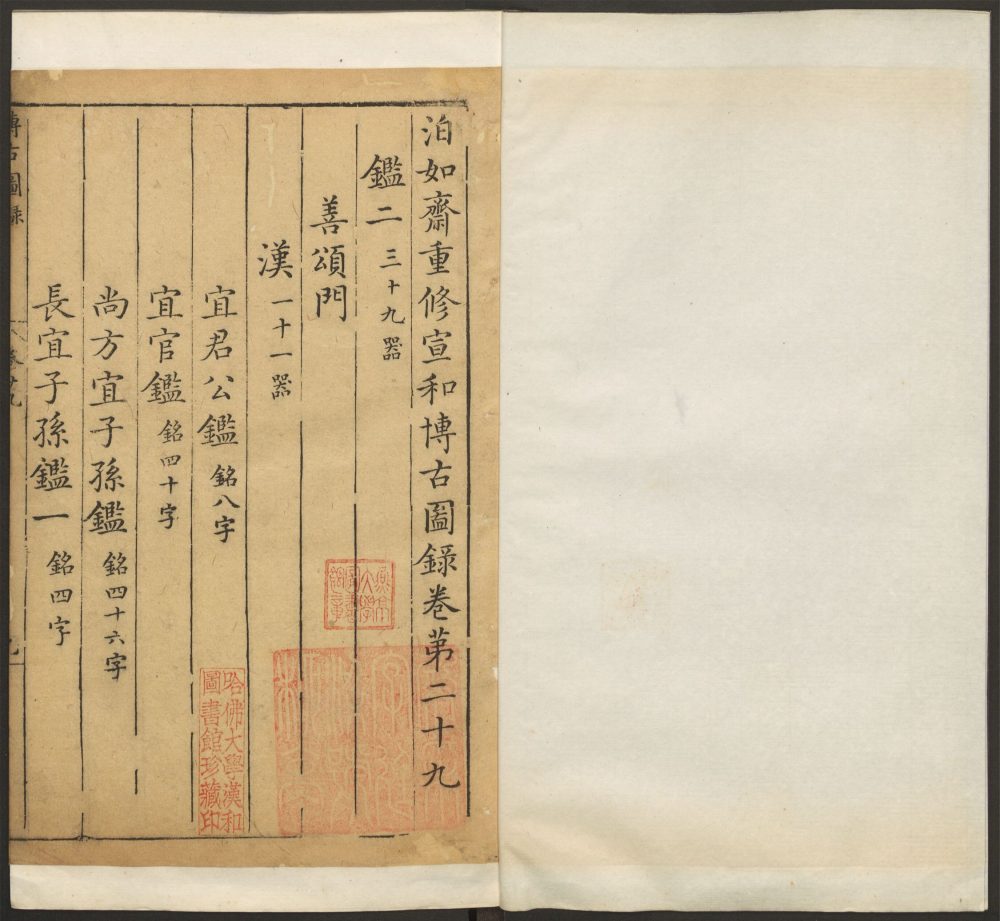 泊如齋重修宣和博古圖錄卷第二十九
鑑二 三十九器
善頌門
漢 一十一器
宜君公鑑 銘八字
宜官鑑 銘四十字
尚方宜子孫鑑 銘四十六字
長宜子孫鑑一 銘四字
博古圖錄
哈佛大學漢和
圖書館珍藏印